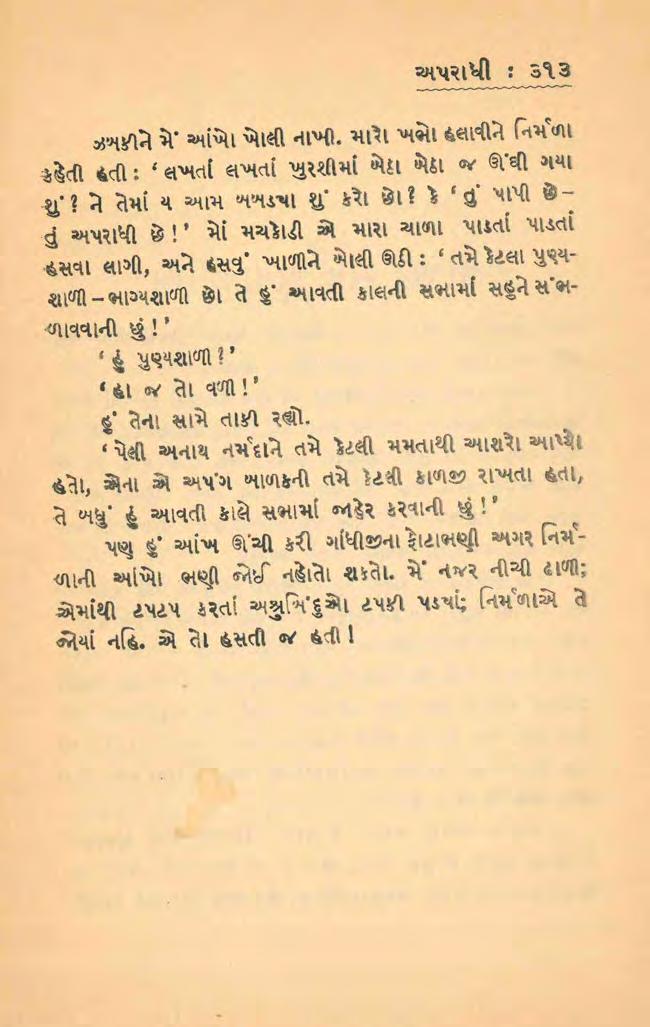 અપરાધી : ૩૧૩
ઝબકીને મેં આંખો ખોલી નાખી. મારો ખભો હલાવીને નિર્મળા
કહેતી હતી : ‘ લખતાં લખતાં ખુરશીમાં બેઠા બેઠા જ ઊંઘી ગયા
શું ? ને તેમાં ય આમ બબડ્યા શું કરો છો? કે ‘ તું પાપી છે –
તું અપરાધી છે ! ’ મોં મચકોડી એ મારા ચાળા પાડતાં પાડતાં
હસવા લાગી, અને હસવું ખાળીને બોલી ઊઠી : ‘ તમે કેટલા પુણ્ય-
શાળી – ભાગ્યશાળી છો તે હું આવતી કાલની સભામાં સહુને સંભ-
ળાવવાની છું ! ’
‘ હું પુણ્યશાળી ? ’
‘ હા જ તો વળી ! ’
હું તેના સામે તાકી રહ્યો.
‘ પેલી અનાથ નર્મદાને તમે કેટલી મમતાથી આશરો આપ્યો
હતો, એના એ અપંગ બાળકની તમે કેટલી કાળજી રાખતા હતા,
તે બધું હું આવતી કાલે સભામાં જાહેર કરવાની છું ! ’
પણ હું આંખ ઊંચી કરી ગાંધીજીના ફોટાભણી અગર નિર્મ-
ળાની આંખો ભણી જોઈ નહોતો શકતો. મેં નજર નીચી ઢાળી;
એમાંથી ટપટપ કરતાં અશ્રુબિંદુઓ ટપકી પડ્યાં; નિર્મળાએ તે
જોયાં નહિ. એ તો હસતી જ હતી !